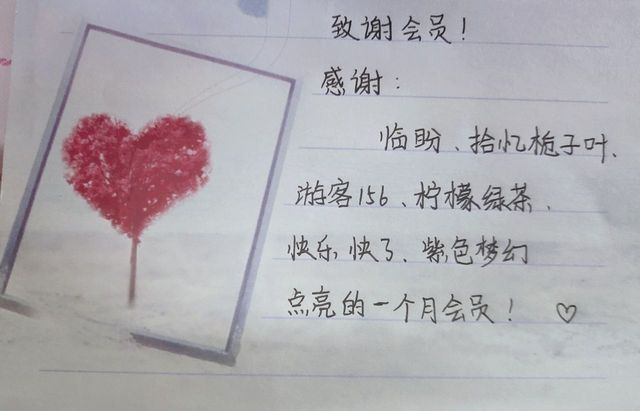 致谢会员！
感谢：
临盼、拾忆栀子叶、
游客156、柠檬绿茶、
快乐快了、紫色梦幻
点亮的一个月会员！♡